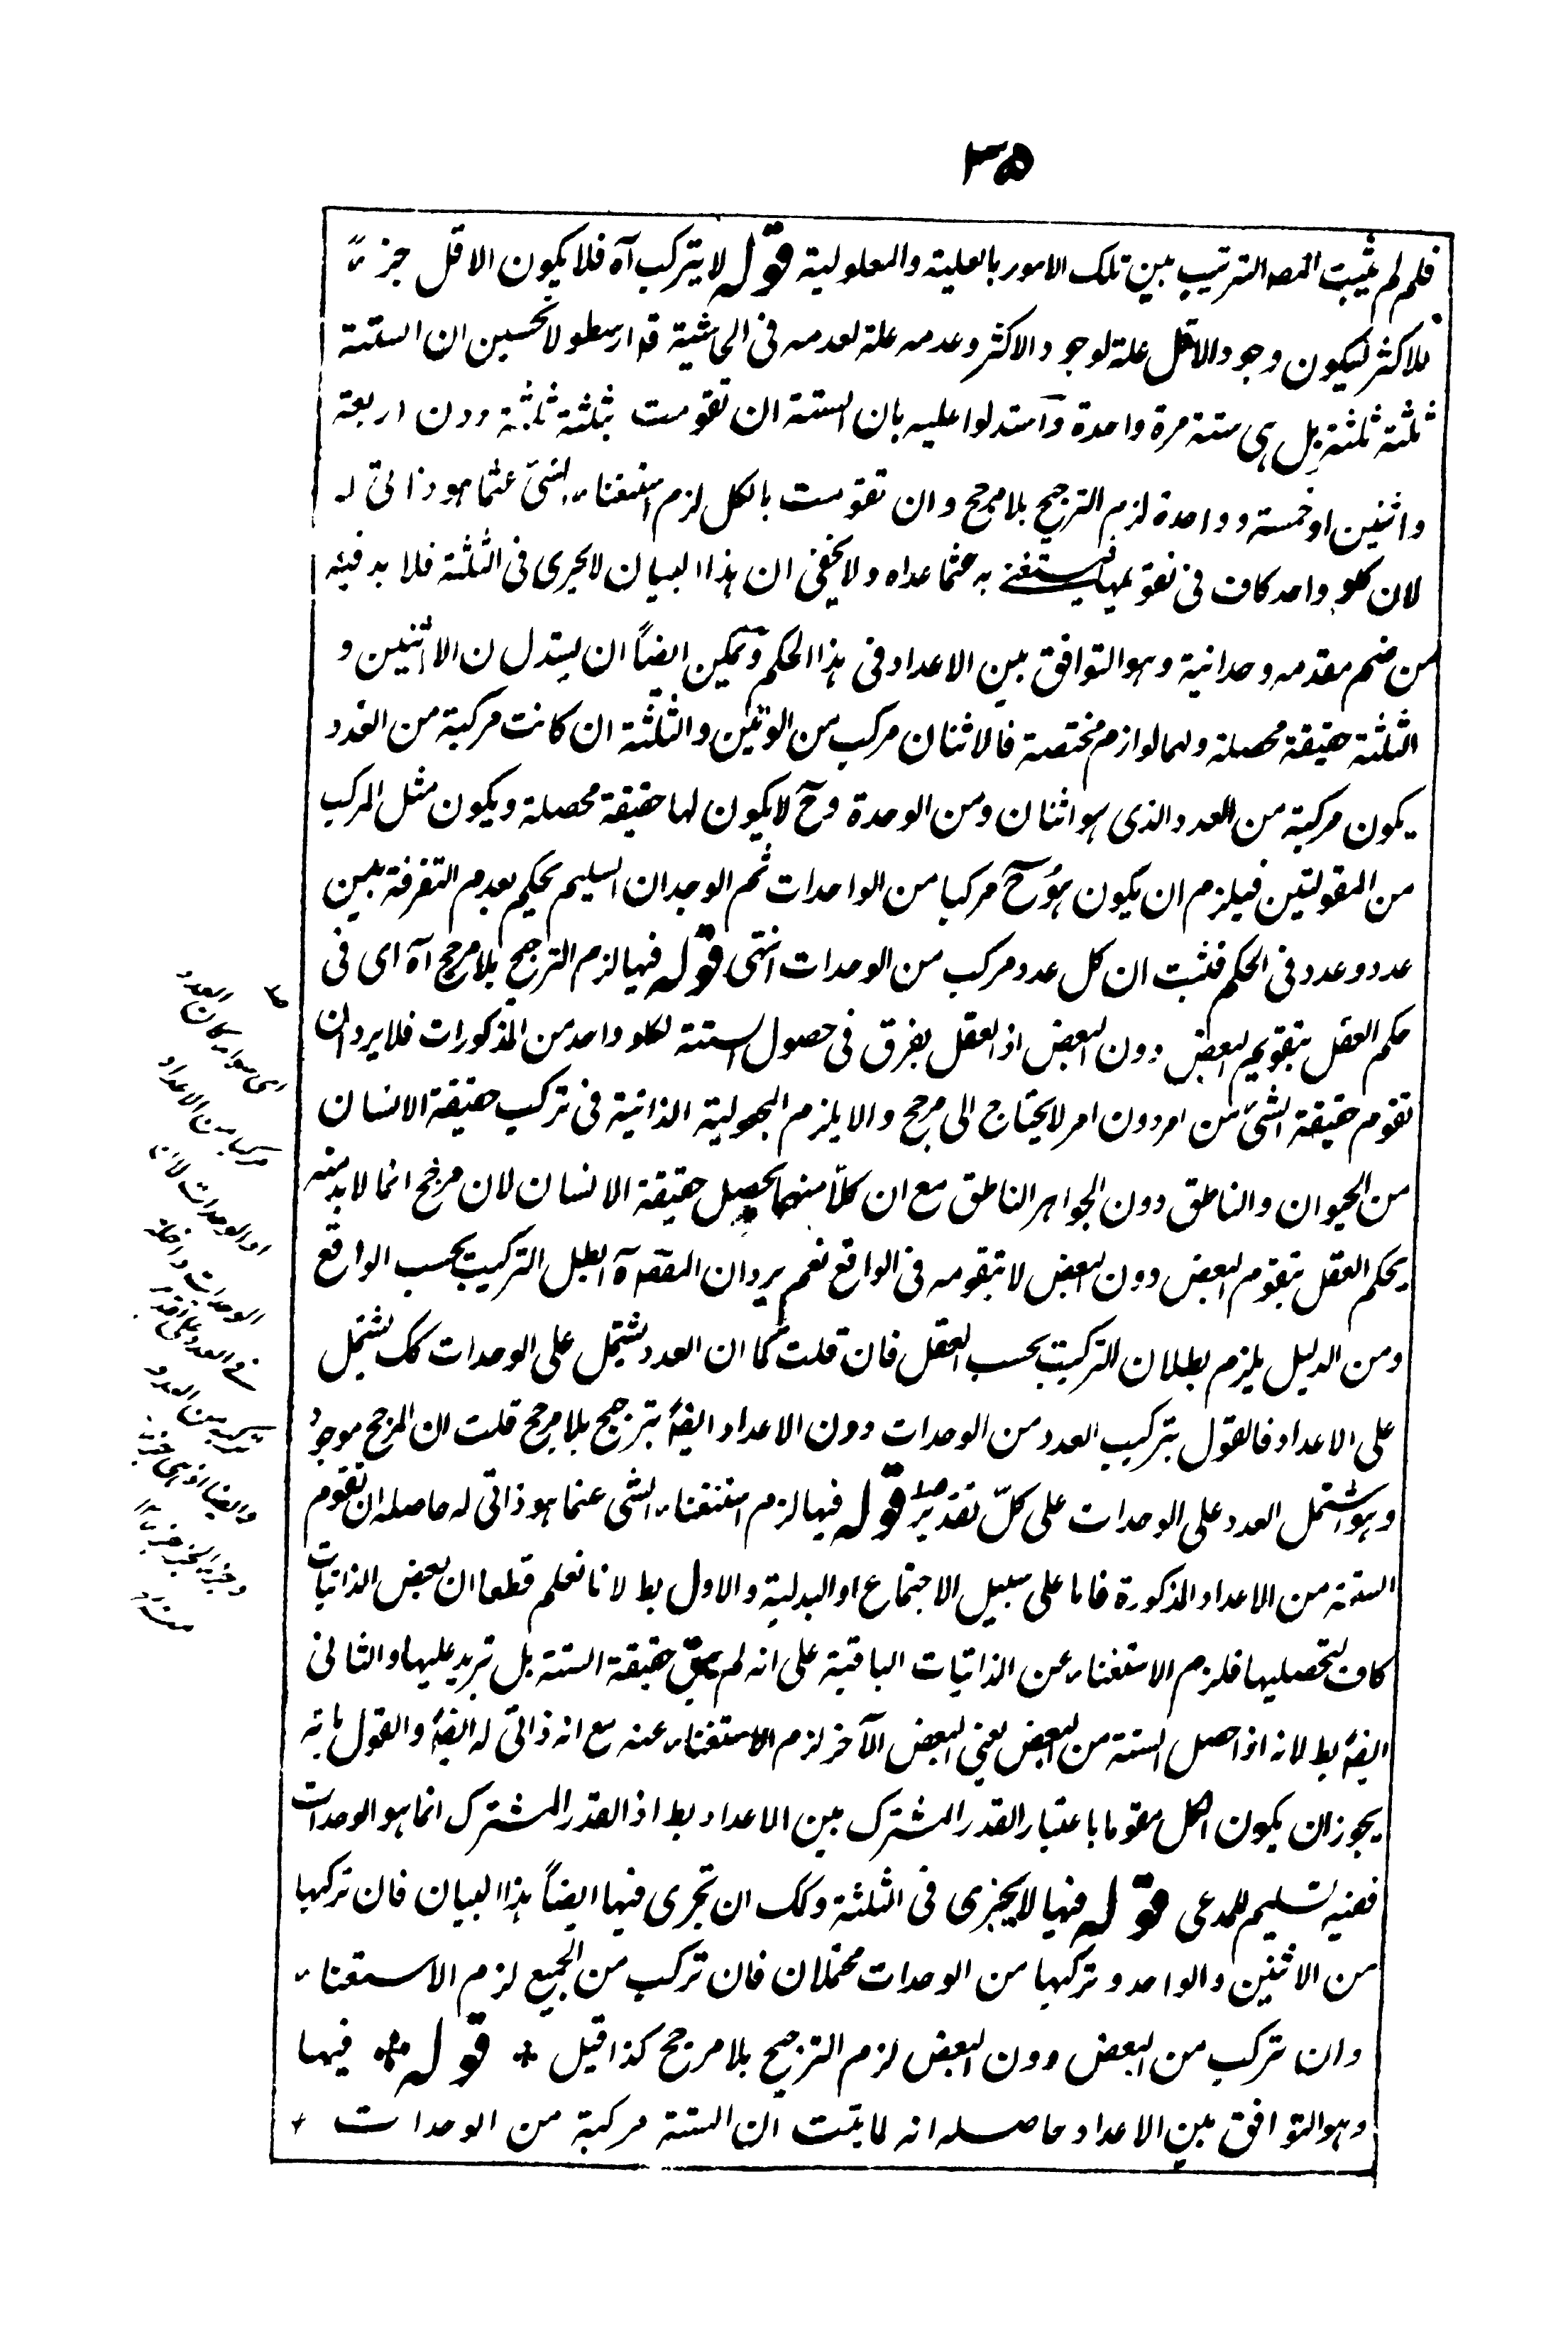 ٣۵
فلم لم يثبت المصه الترتيب بين تلك الامور بالعلية والمعلولية قوله لا يتركب آه فلا يكون الاقل جزءً
للاكثر ليكون وجود الاقل علة لوجود الاكثر وعدمه علة لعدمه فى الحاشية قد ارسطو لا تحسبن ان الستة
ثلثة ثلثة بل هى ستة مرة واحدة واستدلوا عليه بان الستة ان تقومت بثلثة ثلثة دون اربعة
واثنين او خمسة وواحدة لزم الترجيح بلا مرجح وان تقومت بالكل لزم استغناء الشئ عما هو ذاتى له
لان كلو واحد كاف فى تقويمها فيستغنى به عما عداه ولا يخفى ان هذا البيان لا يجرى فى الثلثة فلا بد فيه
من ضم مقدمه وحدانية وهو التوافق بين الاعداد فى هذا الحكم ويمكن ايضاً ان يستدل ن الاثنين و
الثلثة حقيقة محصلة ولهما لوازم مختصة فالاثنان مركب من الوتين والثلثة ان كانت مركبة من العدد
يكون مركبة من العدد الذى هو اثنان ومن الوحدة وح لا يكون لها حقيقة محصلة ويكون مثل المركب
من المقولتين فيلزم ان يكون هو ح مركبا من الواحدات ثم الوجدان السليم يحكم بعدم التفرقة بين
عدد وعدد فى الحكم فثبت ان كل عدد مركب من الوحدات انتهى قوله فيها لزم الترجيح بلا مرجح آه اى فى
حكم العقل بتقويم البعض دون البعض اذ العقل يفرق فى حصول الستة لكلو واحد من المذكورات فلا يرد ان
تقوم حقيقة الشئ من امر دون امر لا يحتاج الى مرجح والا يلزم المجهولية الذاتية فى تركب حقيقة الانسان
من الحيوان والناطق دون الجواهر الناطق مع ان كلاً منهما يحصل حقيقة الانسان لان مرجح انما لا بد منه
يحكم العقل بتقوم البعض دون البعض لا بتقومه فى الواقع نعم يرد ان المقصه آه ابطل التركيب بحسب الواقع
ومن الدليل يلزم بطلان التركيب بحسب العقل فان قلت كما ان العدد يشتمل على الوحدات كك يشتمل
على الاعداد فالقول بتركيب العدد من الوحدات دون الاعداد ايضاً ترجيح بلا مرجح قلت ان المرجح موجود
وهو اشتمل العدد على الوحدات على كلّ تقدير قوله فيها لزم استغناء الشى عنما هو ذاتى له حاصله ان تقوم
الستة من الاعداد المذكورة فاما على سبيل الاجتماع او البدلية والاول بط لانا نعلم قطعا ان بعض الذاتيات
كاف لتحصليها فلزم الاستغناء عن الذاتيات الباقية على انه لم يبق حقيقة الستة بل تزيد عليها والثانى
ايضاً بط لانه اذا حصل الستة من البعض يعنى البعض الآخر لزم الاستغناء عنه مع انه ذاتى له ايضاً والقول بانه
يجوز ان يكون الكل مقوما باعتبار القدر المشترك بين الاعداد بط اذ القدر المشترك انما هو الوحدات
ففيه تسليم للمدعى قوله فيها لا يجزى فى الثلثة وكك ان تجرى فيها ايضاً هذا البيان فان تركبها
من الاثنين والواحد وتركبها من الوحدات محتملان فان تركب من الجميع لزم الاستغناء
وان تركب من البعض دون البعض لزم الترجيح بلا مرجح كذا قيل قوله فيها
وهو التوافق بين الاعداد حاصله انه لما يثبت ان الستة مركبة من الوحدات
اى سواء كان العدد
مركبا من الاعداد
او الوحدات لان
الوحدات داخلة